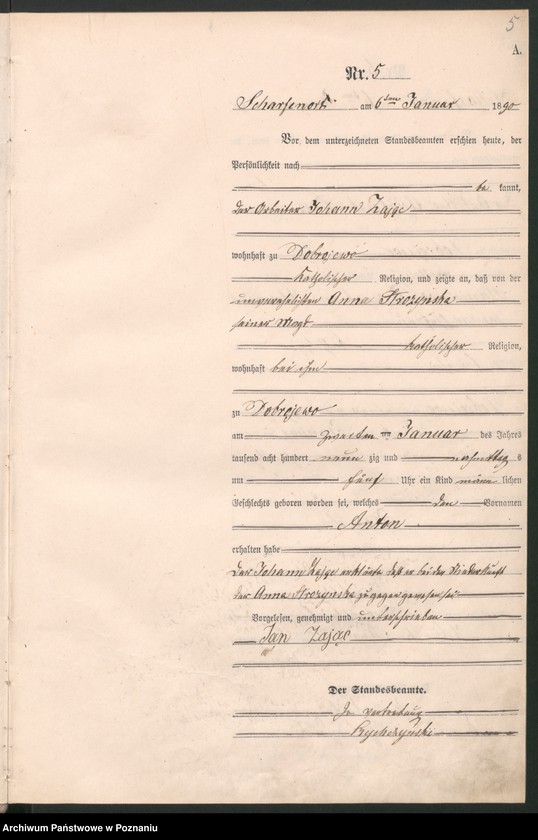 5
A.
Nr. 5
Scharfenort am 6ten Januar 1890
Vor dem unterzeichneten Standesbeamten erschien heute, der
Persönlichkeit nach
be kannt,
der Arbeiter Johann Zajge
wohnhaft zu Dobrojewo
katholischer Religion, und zeigte an, daß von der
unverehelichten Anna Skrozynska
seiner Magd
katholischer Religion,
wohnhaft bei ihm
zu Dobrojewo
am zweiten Januar des Jahres
tausend acht hundert neun zig und nachmittag s
um fünf Uhr ein Kind männ lichen
Geschlechts geboren worden sei, welches den Vornamen
Anton
erhalten habe
Der Johann Zajge erklärte daß er bei der Niederkunft
der Anna zugegen gewesen sei
Vorgelesen, genehmigt und unterschrieben
Jan Zając
Der Standesbeamte.
In Vertretung
Archiwum Państwowe w Poznaniu